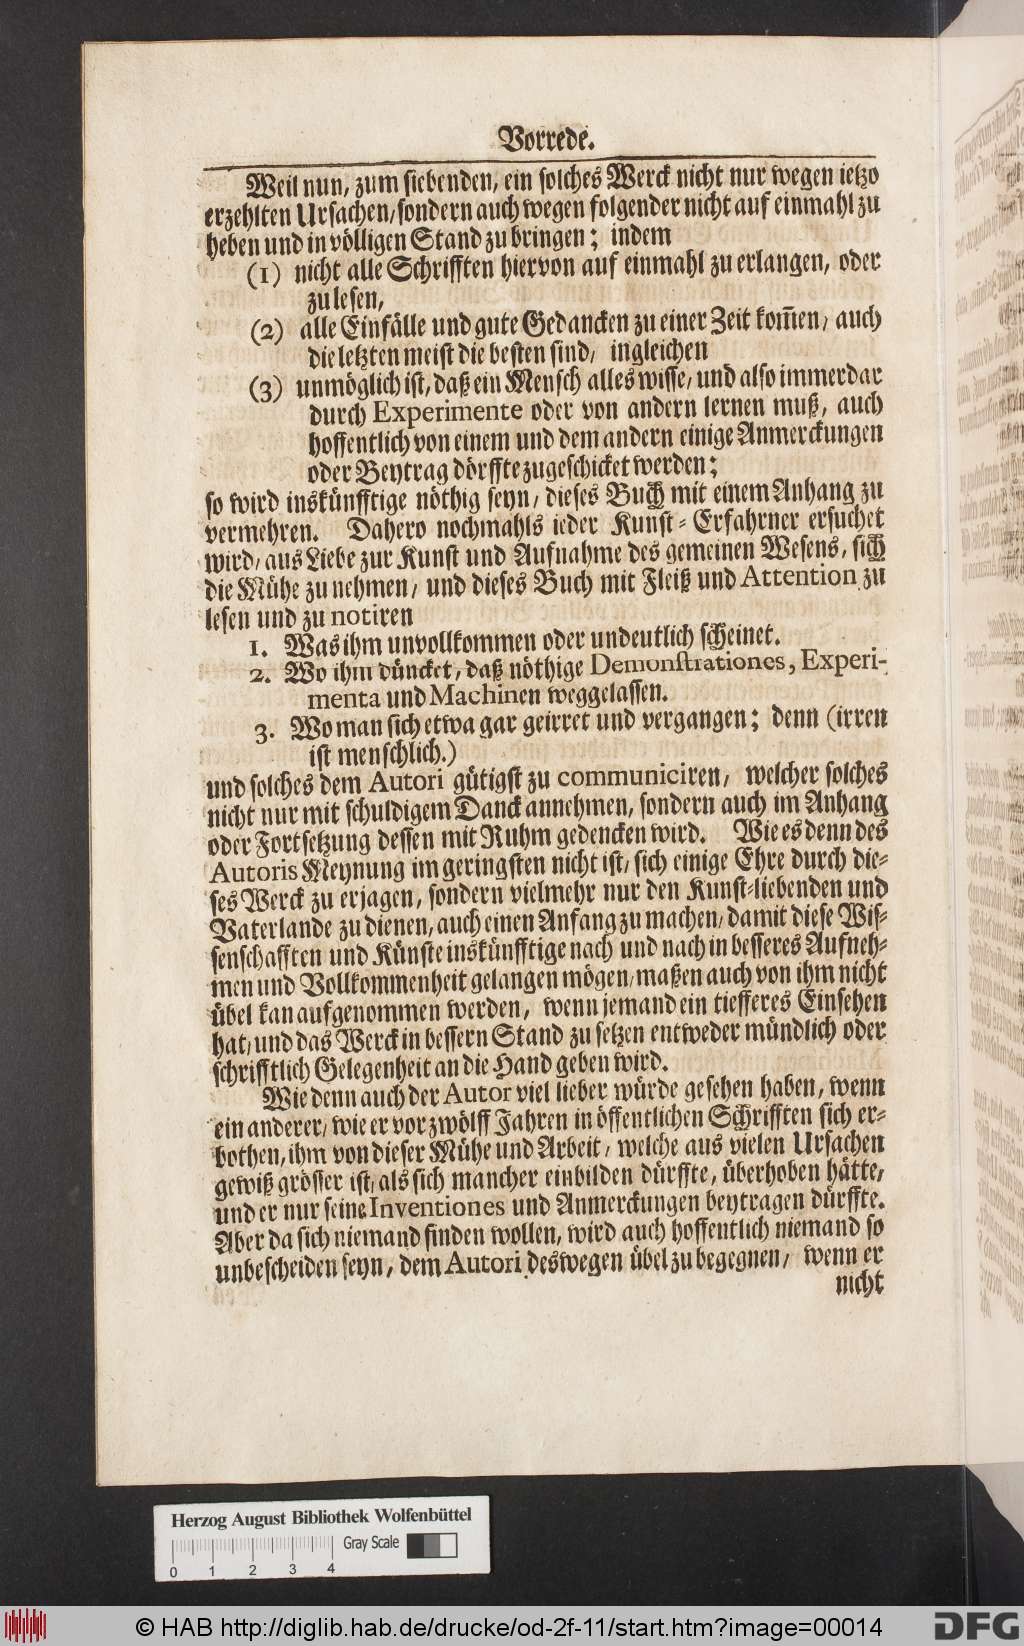 Vorrede.
Weil nun, zum siebenden, ein solches Werck nicht nur wegen ietzo
erzehlten Ursachen/ sondern auch wegen folgender nicht auf einmahl zu
heben und in völligen Stand zu bringen; indem
(1) nicht alle Schrifften hiervon auf einmahl zu erlangen, oder
zu lesen,
(2) alle Einfälle und gute Gedancken zu einer Zeit kom̃en/ auch
die letzten meist die besten sind/ ingleichen
(3) unmöglich ist, daß ein Mensch alles wisse/ und also immerdar
durch Experimente oder von andern lernen muß, auch
hoffentlich von einem und dem andern einige Anmerckungen
oder Beytrag dörffte zugeschicket werden;
so wird inskünfftige nöthig seyn/ dieses Buch mit einem Anhang zu
vermehren. Dahero nochmahls ieder Kunst-Erfahrner ersuchet
wird/ aus Liebe zur Kunst und Aufnahme des gemeinen Wesens, sich
die Mühe zu nehmen/ und dieses Buch mit Fleiß und Attention zu
lesen und zu notiren
1. Was ihm unvollkommen oder undeutlich scheinet.
2. Wo ihm düncket, daß nöthige Demonstrationes, Experi-
menta und Machinen weggelassen.
3. Wo man sich etwa gar geirret und vergangen; denn (irren
ist menschlich.)
und solches dem Autori gütigst zu communiciren/ welcher solches
nicht nur mit schuldigem Danck annehmen, sondern auch im Anhang
oder Fortsetzung dessen mit Ruhm gedencken wird. Wie es denn des
Autoris Meynung im geringsten nicht ist/ sich einige Ehre durch die-
ses Werck zu erjagen, sondern vielmehr nur den Kunst-liebenden und
Vaterlande zu dienen, auch einen Anfang zu machen/ damit diese Wis-
senschafften und Künste inskünfftige nach und nach in besseres Aufneh-
men und Vollkommenheit gelangen mögen/ maßen auch von ihm nicht
übel kan aufgenommen werden, wenn jemand ein tiefferes Einsehen
hat/ und das Werck in bessern Stand zu setzen entweder mündlich oder
schrifftlich Gelegenheit an die Hand geben wird.
Wie denn auch der Autor viel lieber würde gesehen haben, wenn
ein anderer/ wie er vor zwölff Jahren in öffentlichen Schrifften sich er-
bothen, ihm von dieser Mühe und Arbeit/ welche aus vielen Ursachen
gewiß grösser ist/ als sich mancher einbilden dürffte, überhoben hätte/
und er nur seine Inventiones und Anmerckungen beytragen dürffte.
Aber da sich niemand finden wollen, wird auch hoffentlich niemand so
unbescheiden seyn, dem Autori deswegen übel zu begegnen/ wenn er
nicht
Herzog August Bibliothek Wolfenbüttel
Gray Scale
0 1 2 3 4
© HAB http://diglib.hab.de/drucke/od-2f-11/start.htm?image=00014
DFG